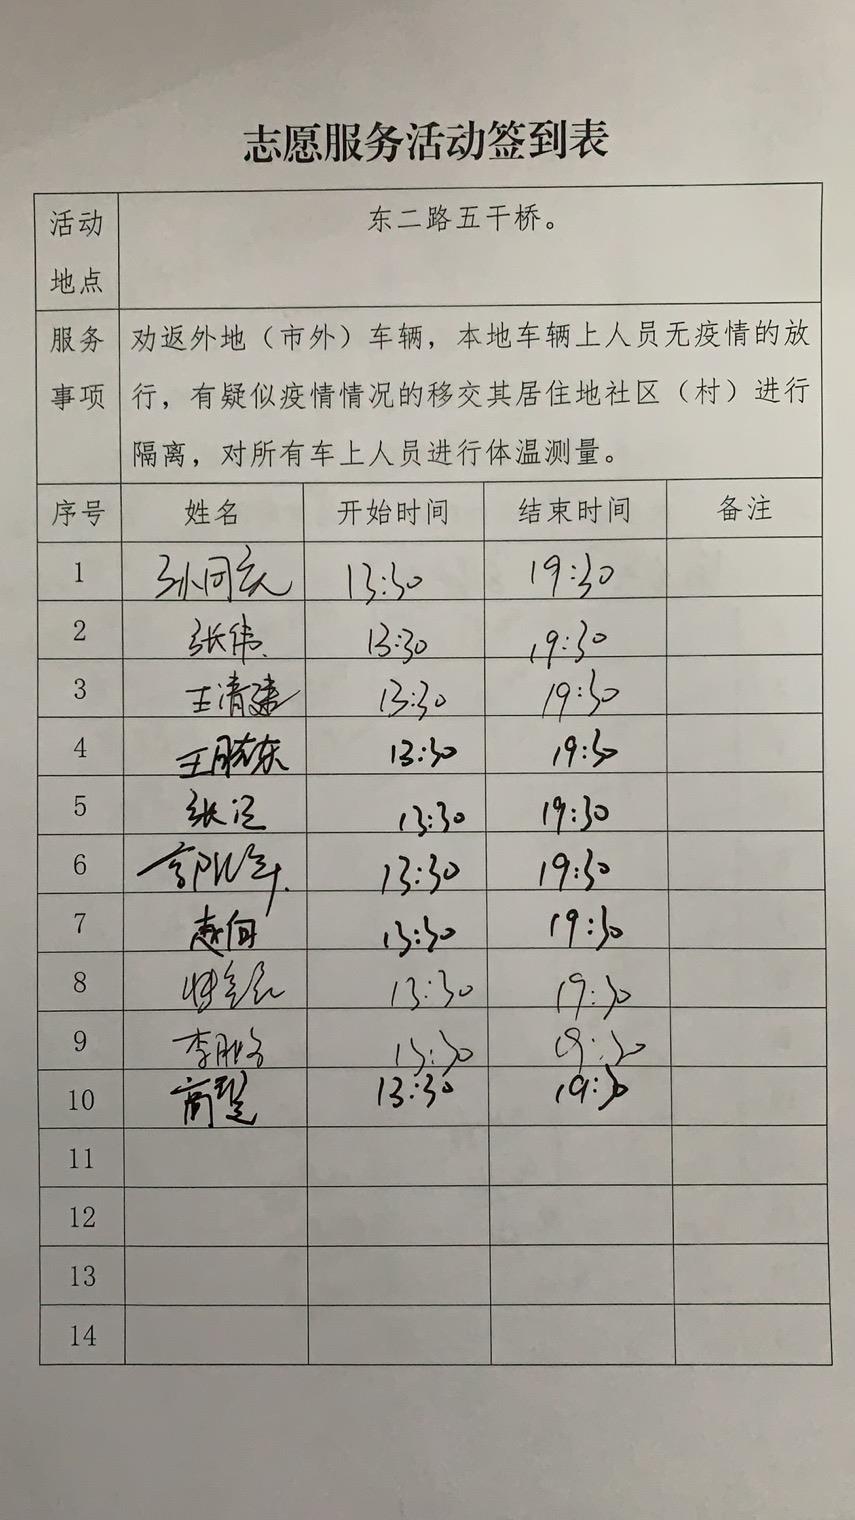 志愿服务活动签到表
活动地点 东二路五干桥。
服务事项 劝返外地（市外）车辆，本地车辆上人员无疫情的放
行，有疑似疫情情况的移交其居住地社区（村）进行
隔离，对所有车上人员进行体温测量。
序号 姓名 开始时间 结束时间 备注
1 13:30 19:30
2 张伟 13:30 19:30
3 王清建 13:30 19:30
4 王胜东 13:30 19:30
5 13:30 19:30
6 13:30 19:30
7 赵向 13:30 19:30
8 13:30 19:30
9 13:30 19:30
10 13:30 19:30
11
12
13
14